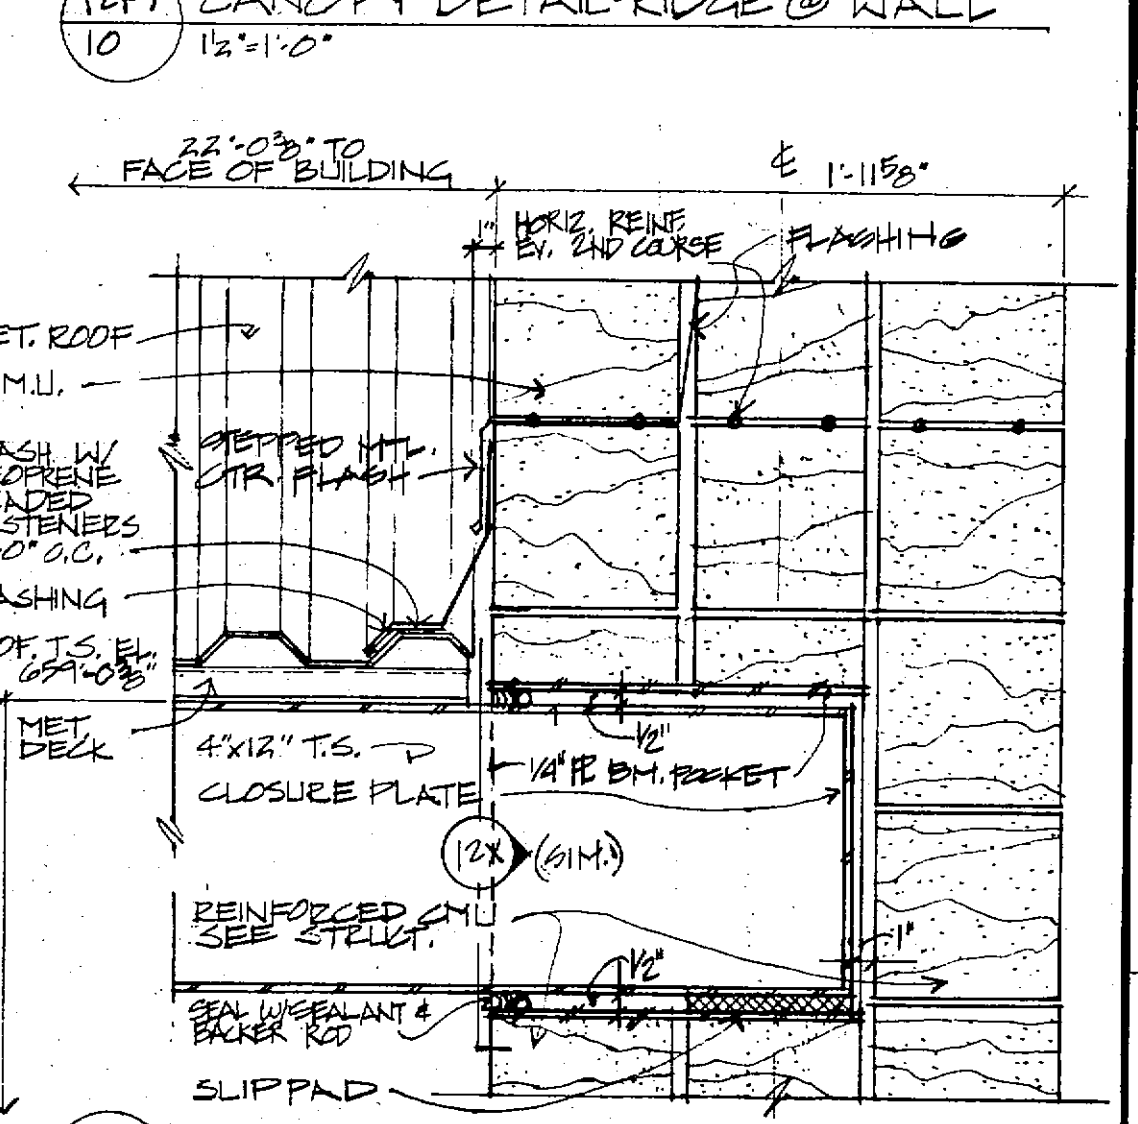 CANOPY DETAIL-RIDGE @ WALL
10
1½"=1'-0"
22'-0⅜" TO
FACE OF BUILDING
℄
1'-11⅝"
1"
HORIZ. REINF.
EV. 2ND COURSE
FLASHING
ET. ROOF
M.U.
STEPPED MTL.
CTR. FLASH
ASH W/
OPRENE
ADED
STENERS
0" O.C.
ASHING
OF. T.S. EL.
659'-0⅜"
MET.
DECK
4"X12" T.S.
CLOSURE PLATE
½"
¼" PL BM. POCKET
12X
(SIM.)
REINFORCED CMU
SEE STRUCT.
1"
½"
SEAL W/SEALANT &
BACKER ROD
SLIP PAD